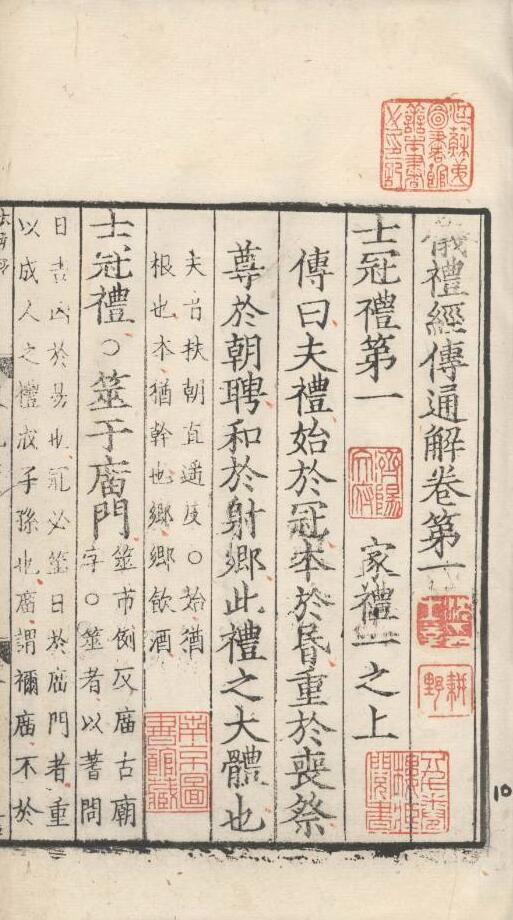 儀禮經傳通解卷第一
士冠禮第一 家禮一之上
傳曰夫禮始於冠本於昬重於喪祭
尊於朝聘和於射鄉此禮之大體也
夫音扶朝直遥反○始猶
根也本猶幹也鄉鄉飲酒
士冠禮○筮于庿門
筮市例反庿古廟
字○筮者以蓍問
日吉凶於易也冠必筮日於庿門者重
以成人之禮成子孫也庿謂禰庿不於
南京圖
書館藏
耕
野
10